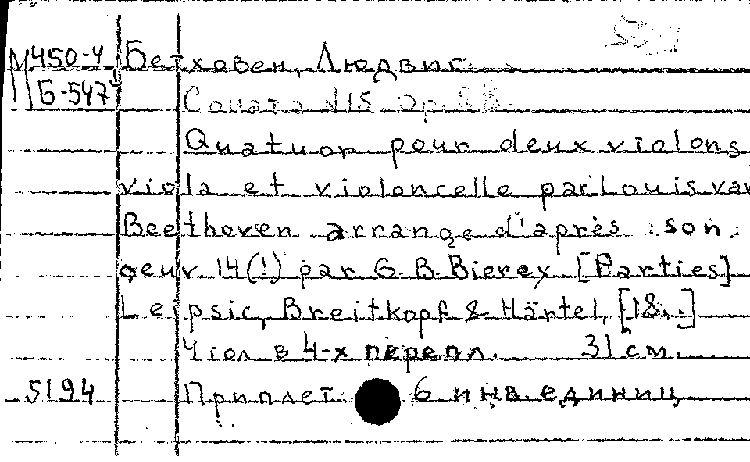 М450-4 Бетховен, Людвиг.
Б-547
Соната №15 Op.28.
Quatuor pour deux violons
viola et violoncelle par Louis van
Beethoven arrange d'après son
oeuv. 14(!) par G. B. Bierey. [Parties]
Leipsic, Breitkopf & Härtel, [18..]
4 гол. в 4-х перепл. 31 см.
5194 Приплет. 6 инв. единиц